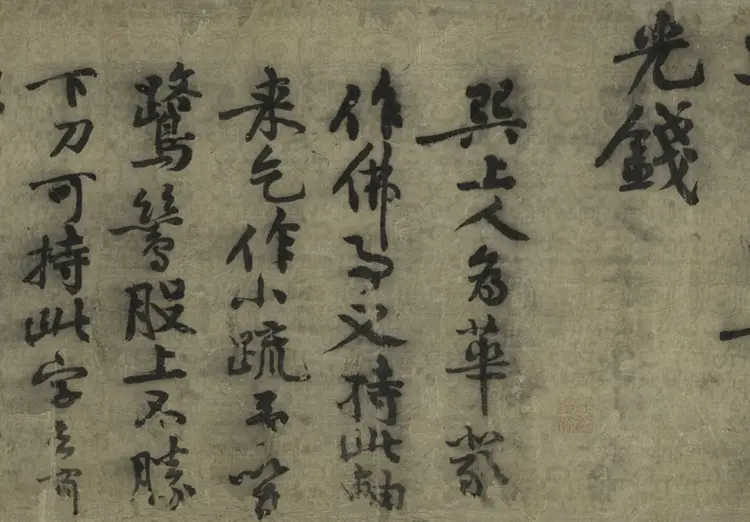 光錢
巽上人為華嚴
作佛事又持此軸
来乞作小疏不管
鷺鷥股上不勝
下刀可持此字